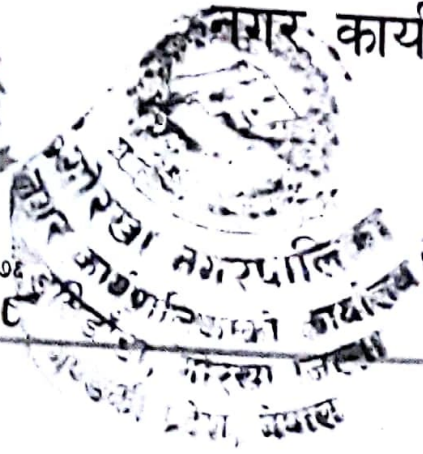 नगर कार्य
गोरखा नगरपालिका
नगर कार्यपालिकाको कार्यालय
गोरखा जिल्ला
प्रदेश, नेपाल